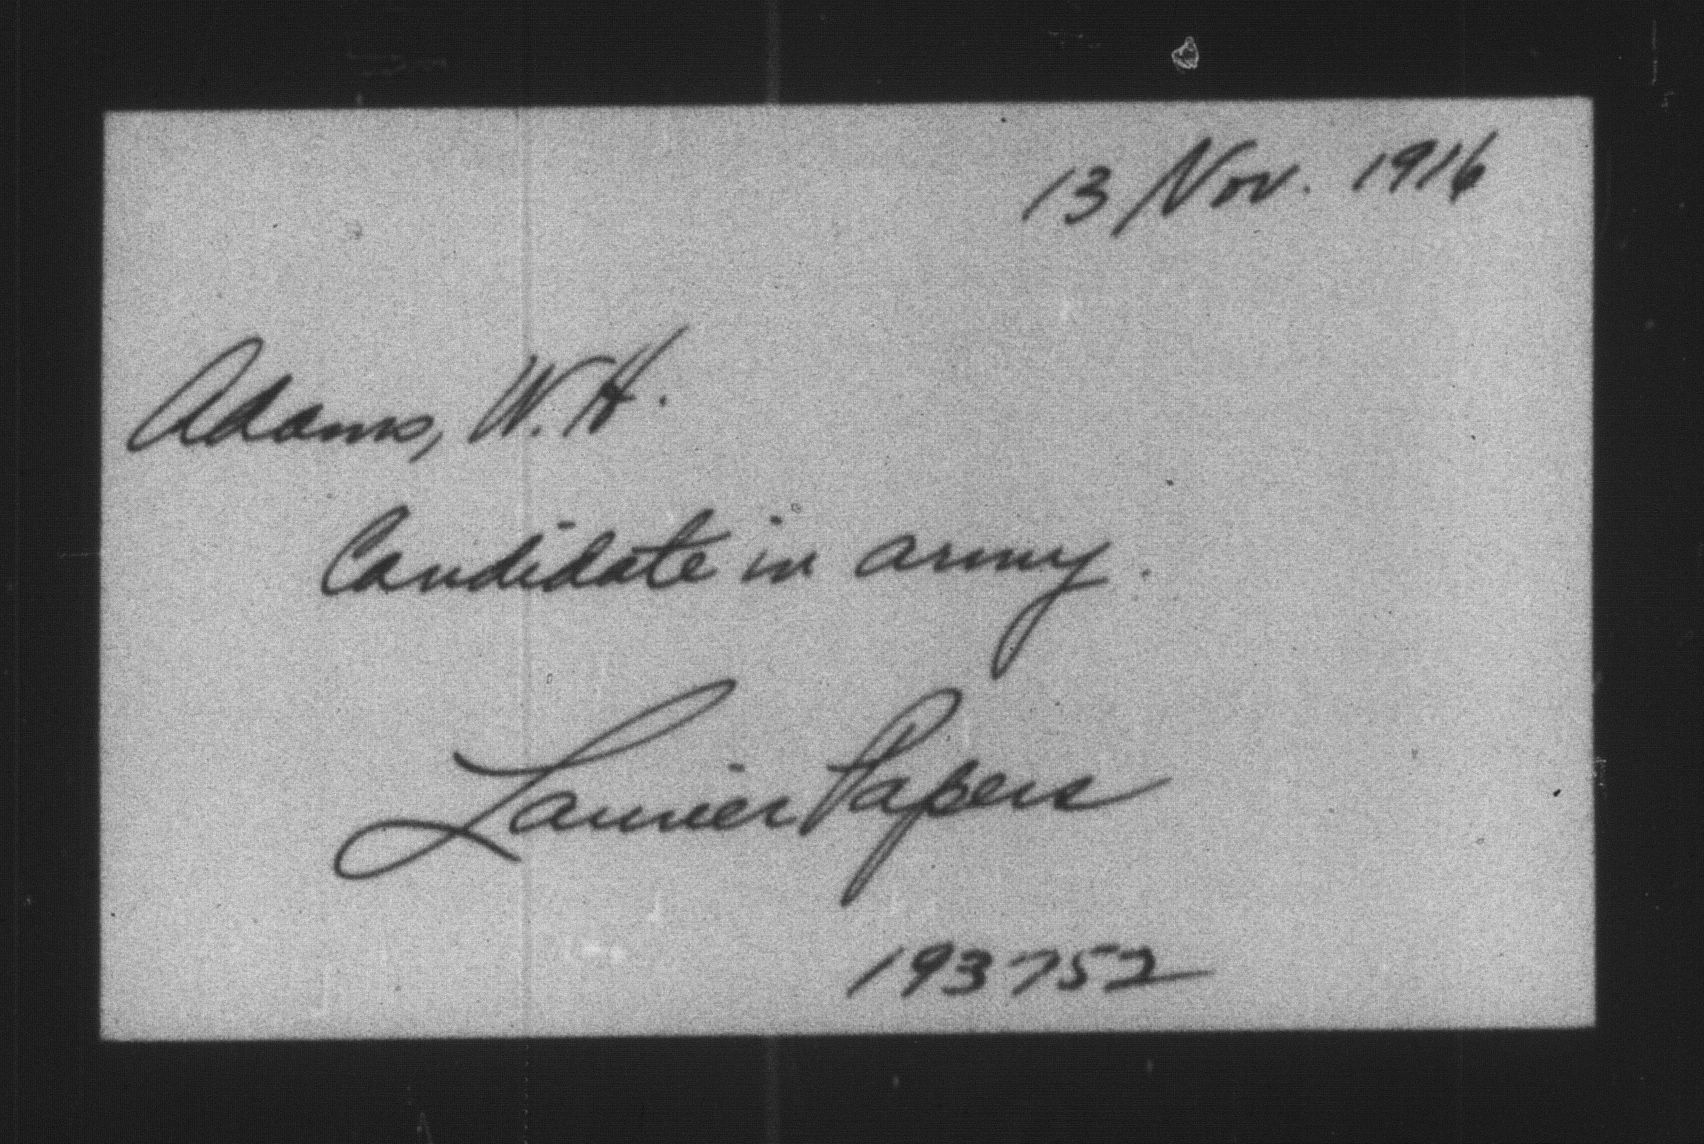 13 Nov. 1916
Adams, W. H.
Candidate in army.
Laurier Papers
193752